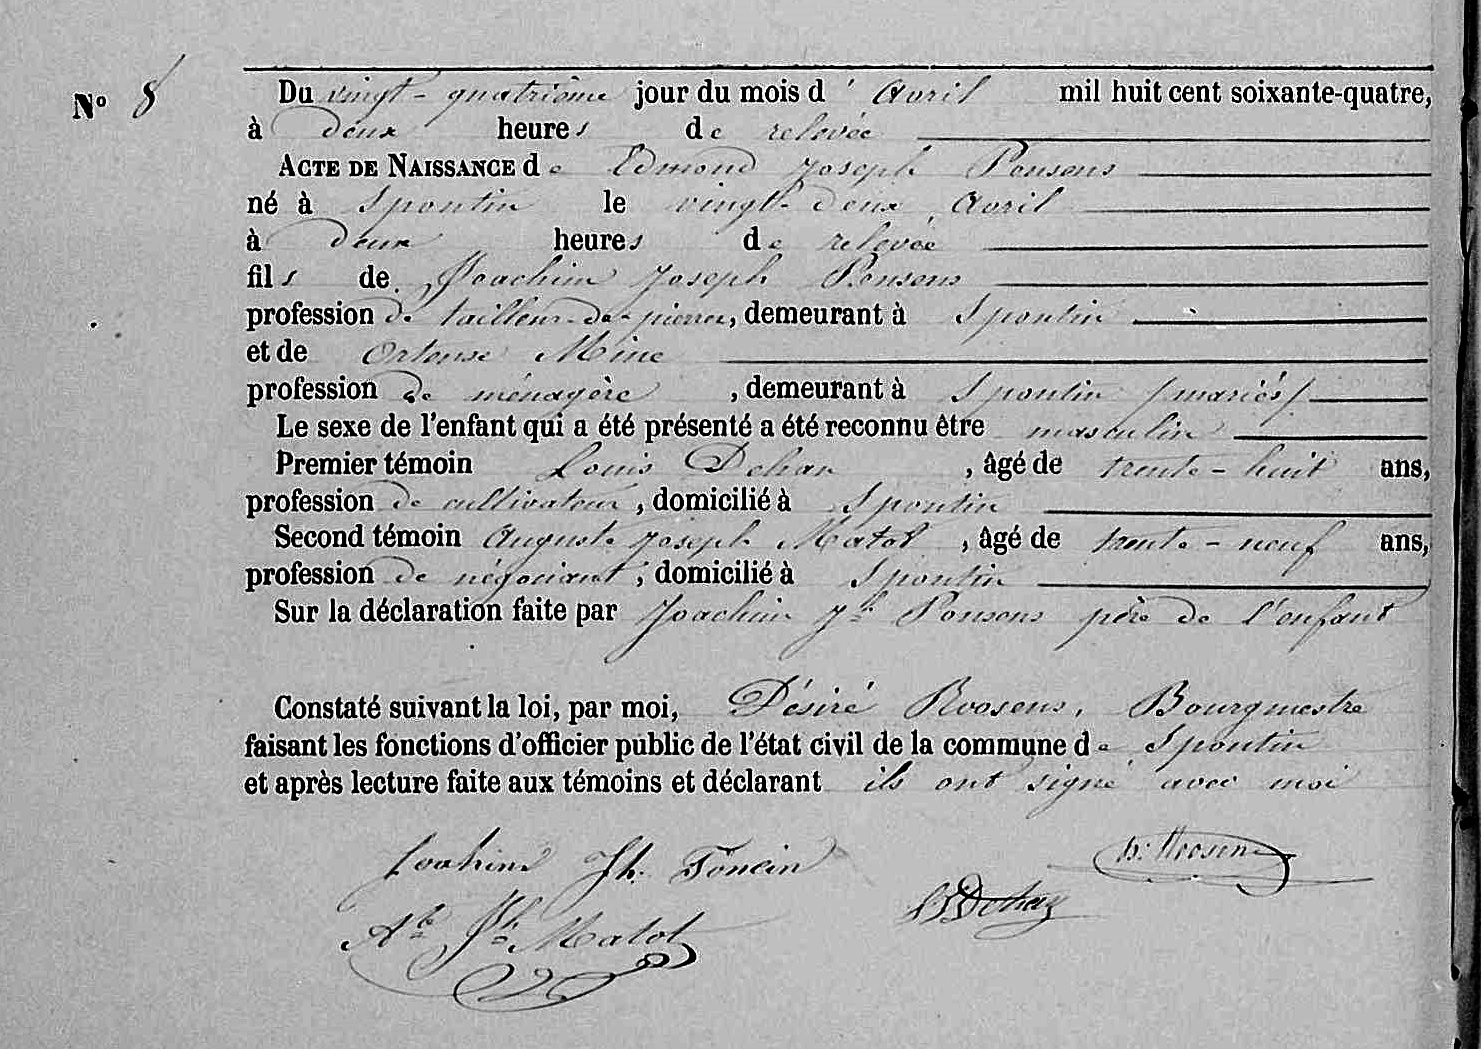 N° 8
Du vingt-quatrième jour du mois d'Avril mil huit cent soixante-quatre,
à deux heures de relevée
ACTE DE NAISSANCE de Edmond Joseph Ponsens
né à Spontin le vingt-deux Avril
à deux heures de relevée
fils de Joachim Joseph Ponsens
profession de tailleur-de-pierres, demeurant à Spontin
et de Ortense Mine
profession de ménagère, demeurant à Spontin /mariés/
Le sexe de l'enfant qui a été présenté a été reconnu être masculin
Premier témoin Louis Dohan, âgé de trente-huit ans,
profession de cultivateur, domicilié à Spontin
Second témoin Auguste Joseph Matot, âgé de trente-neuf ans,
profession de négociant, domicilié à Spontin
Sur la déclaration faite par Joachim Jh Ponsens père de l'enfant
Constaté suivant la loi, par moi, Désiré Roosens, Bourgmestre
faisant les fonctions d'officier public de l'état civil de la commune de Spontin
et après lecture faite aux témoins et déclarant ils ont signé avec moi
Joahim Jh. Poncin
D: Roosens
Dohan
Ate Jh Matot